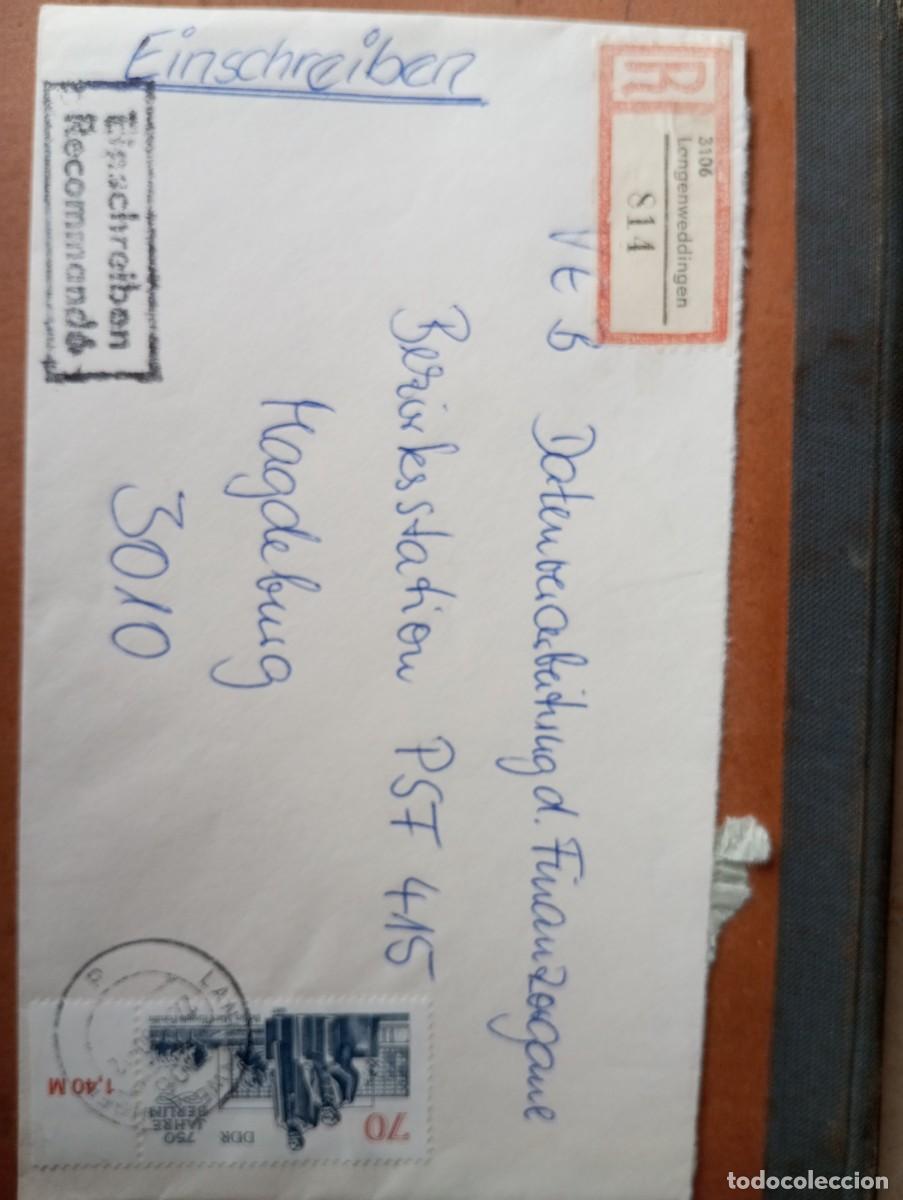 Einschreiben
Einschreiben
Recommandé
R
3106
Langenweddingen
814
VEB Datenverarbeitung d. Finanzorgane
Bezirksstation PSF 415
Magdeburg
3010
70
DDR
750
JAHRE
BERLIN
1,40 M
todocoleccion